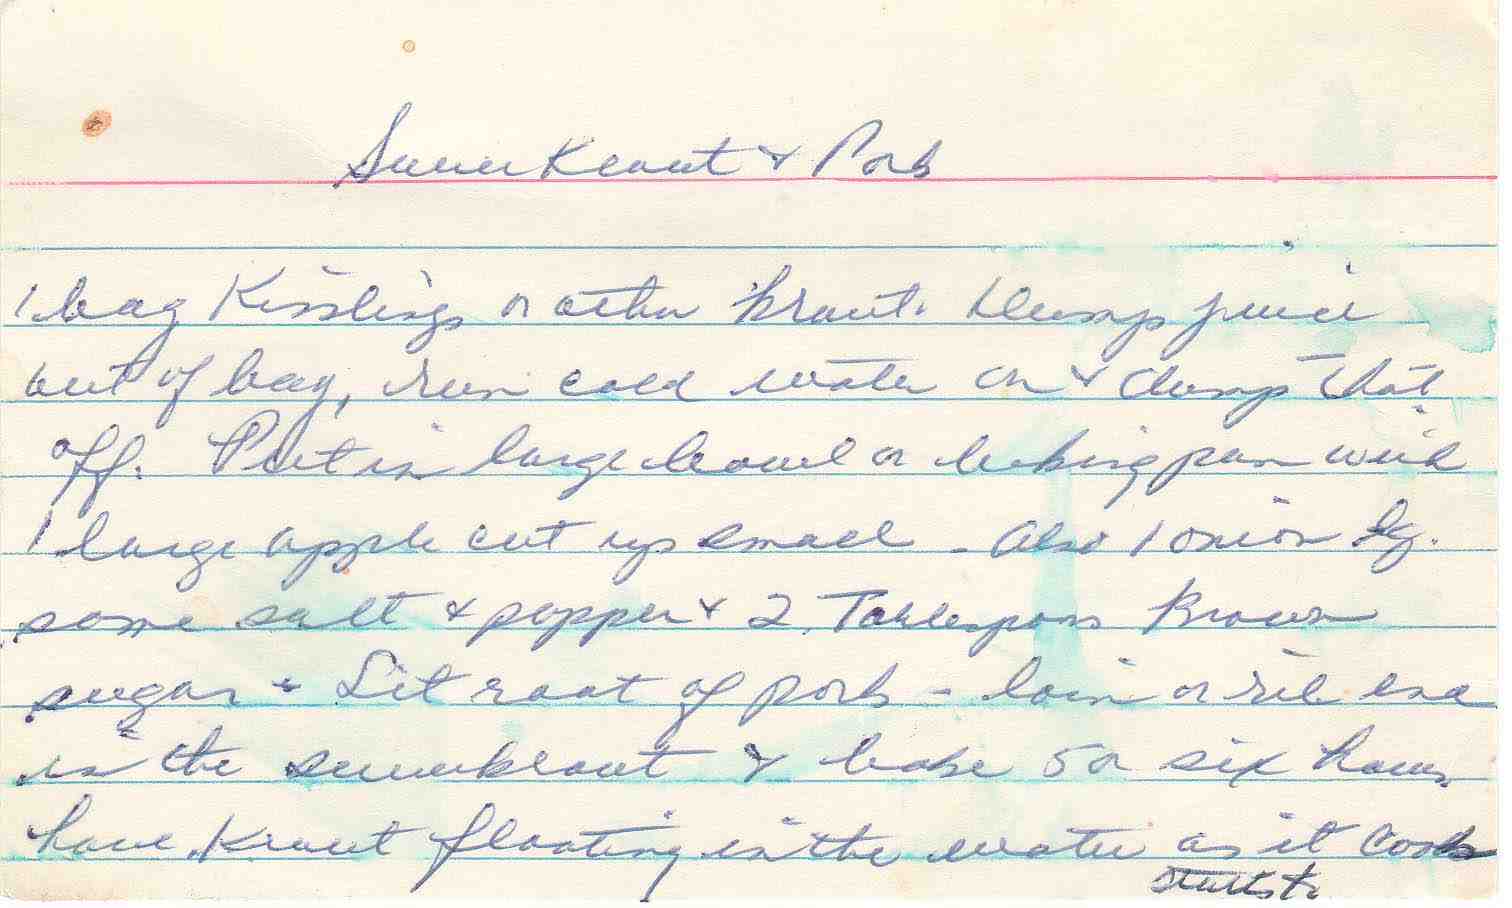 Sauerkraut & Pork
1 bag Kisslings or other Kraut. Dump juice
out of bag, run cold water on & dump that
off. Put in large bowl or baking pan with
1 large apple cut up small - also 1 onion lg.
some salt & pepper & 2 Tablespoons Brown
sugar & Sit roast of pork - loin or rib end
in the sauerkraut & bake 5 or six hours.
have Kraut floating in the water as it cooks
starts to